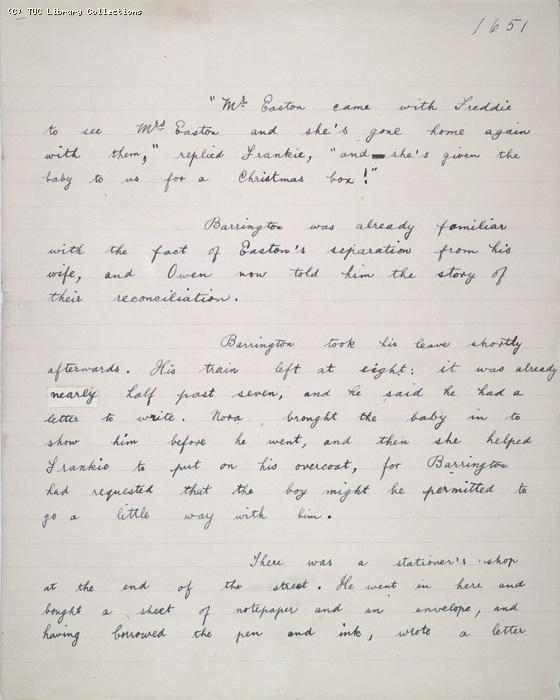 (C) TUC Library Collections
1651
"Mr. Easton came with Freddie
to see Mrs Easton and she's gone home again
with them," replied Frankie, "and she's given the
baby to us for a Christmas box!"
Barrington was already familiar
with the fact of Easton's separation from his
wife, and Owen now told him the story of
their reconciliation.
Barrington took his leave shortly
afterwards. His train left at eight: it was already
nearly half past seven, and he said he had a
letter to write. Nora brought the baby in to
show him before he went, and then she helped
Frankie to put on his overcoat, for Barrington
had requested that the boy might be permitted to
go a little way with him.
There was a stationer's shop
at the end of the street. He went in here and
bought a sheet of notepaper and an envelope, and
having borrowed the pen and ink, wrote a letter